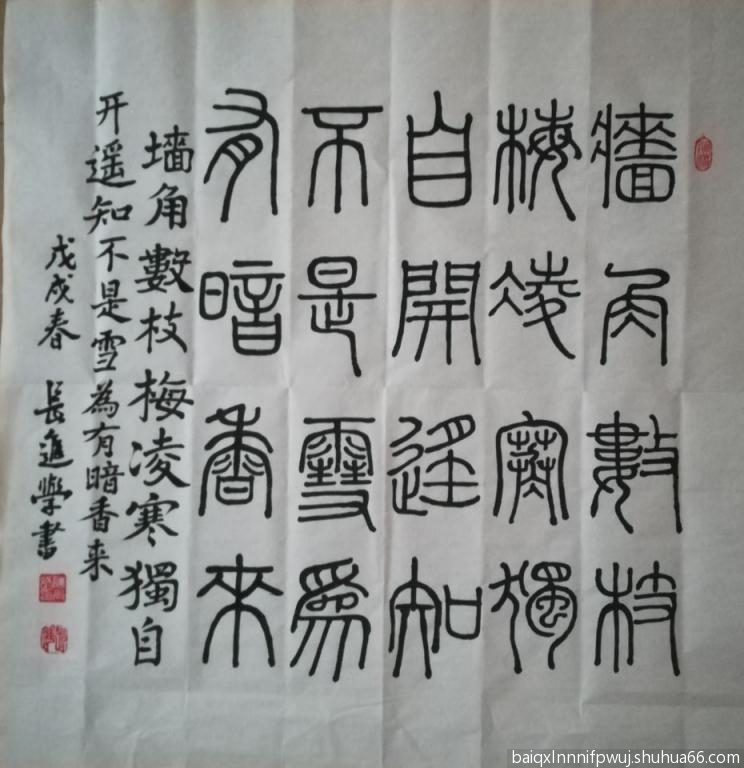 牆角數枝
梅凌寒獨
自開遥知
不是雪爲
有暗香來
墙角數枝梅凌寒獨自
开遥知不是雪為有暗香来
戊戌春 長進學書
baiqxlnnnifpwuj.shuhua66.com